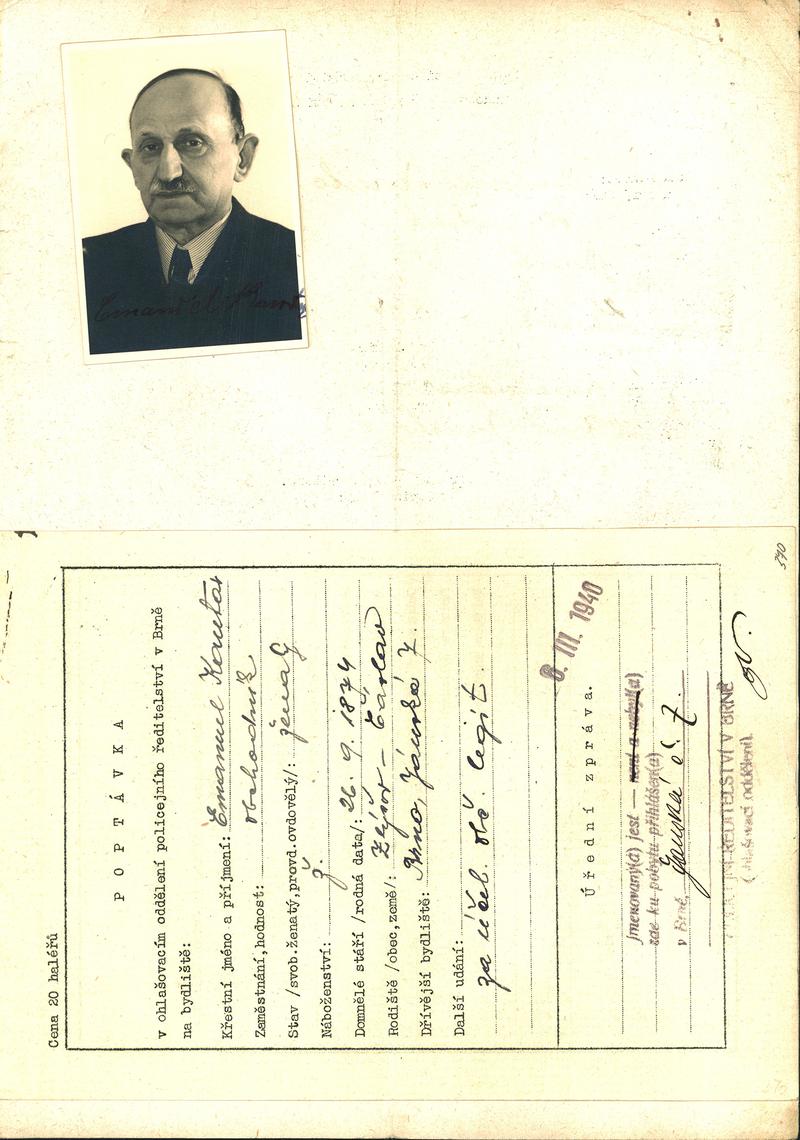 Emanuel
Cena 20 haléřů
POPTÁVKA
v ohlašovacím oddělení policejního ředitelství v Brně
na bydliště:
Křestní jméno a příjmení: Emanuel Kantor
Zaměstnání,hodnost: obchodník
Stav /svob.ženatý,provd.ovdovělý/: ženatý
Náboženství: ž.
Domnělé stáří /rodná data/: 26. 9. 1874
Rodiště /obec,země/: - Čáslav
Dřívější bydliště: Brno, Jánská 7.
Další udání:
za účel. obč. legit.
8. III. 1940
Úřední zpráva.
Jmenovaný(á) jest — není a nebyl(a)
zde ku pobytu přihlášen(a)
v Brně, Jánská č. 7.
ŘEDITELSTVÍ V BRNĚ
(ohlašovací oddělení).
570